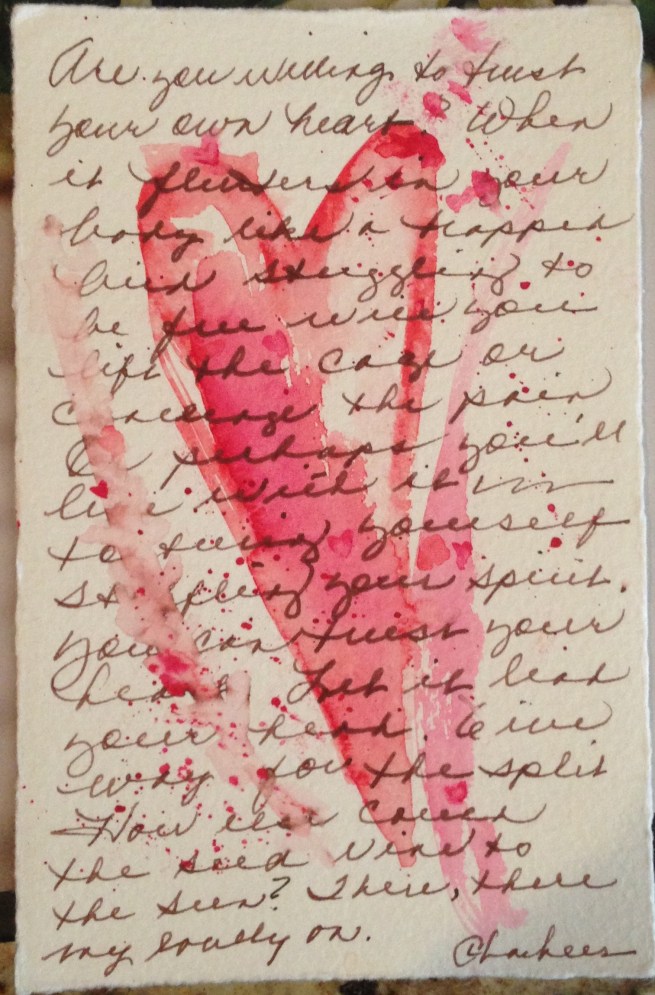 Are you willing to trust
your own heart? When
it flutters in your
body like a trapped
bird struggling to
be free will you
lift the cage or
the pain
Or perhaps you'll
live with it
to turning yourself
stifling your spirit.
You can trust your
heart. Let it lead
your head. Give
way for the split
How else could
the seed vine to
the sun? There, there
my lovely on.